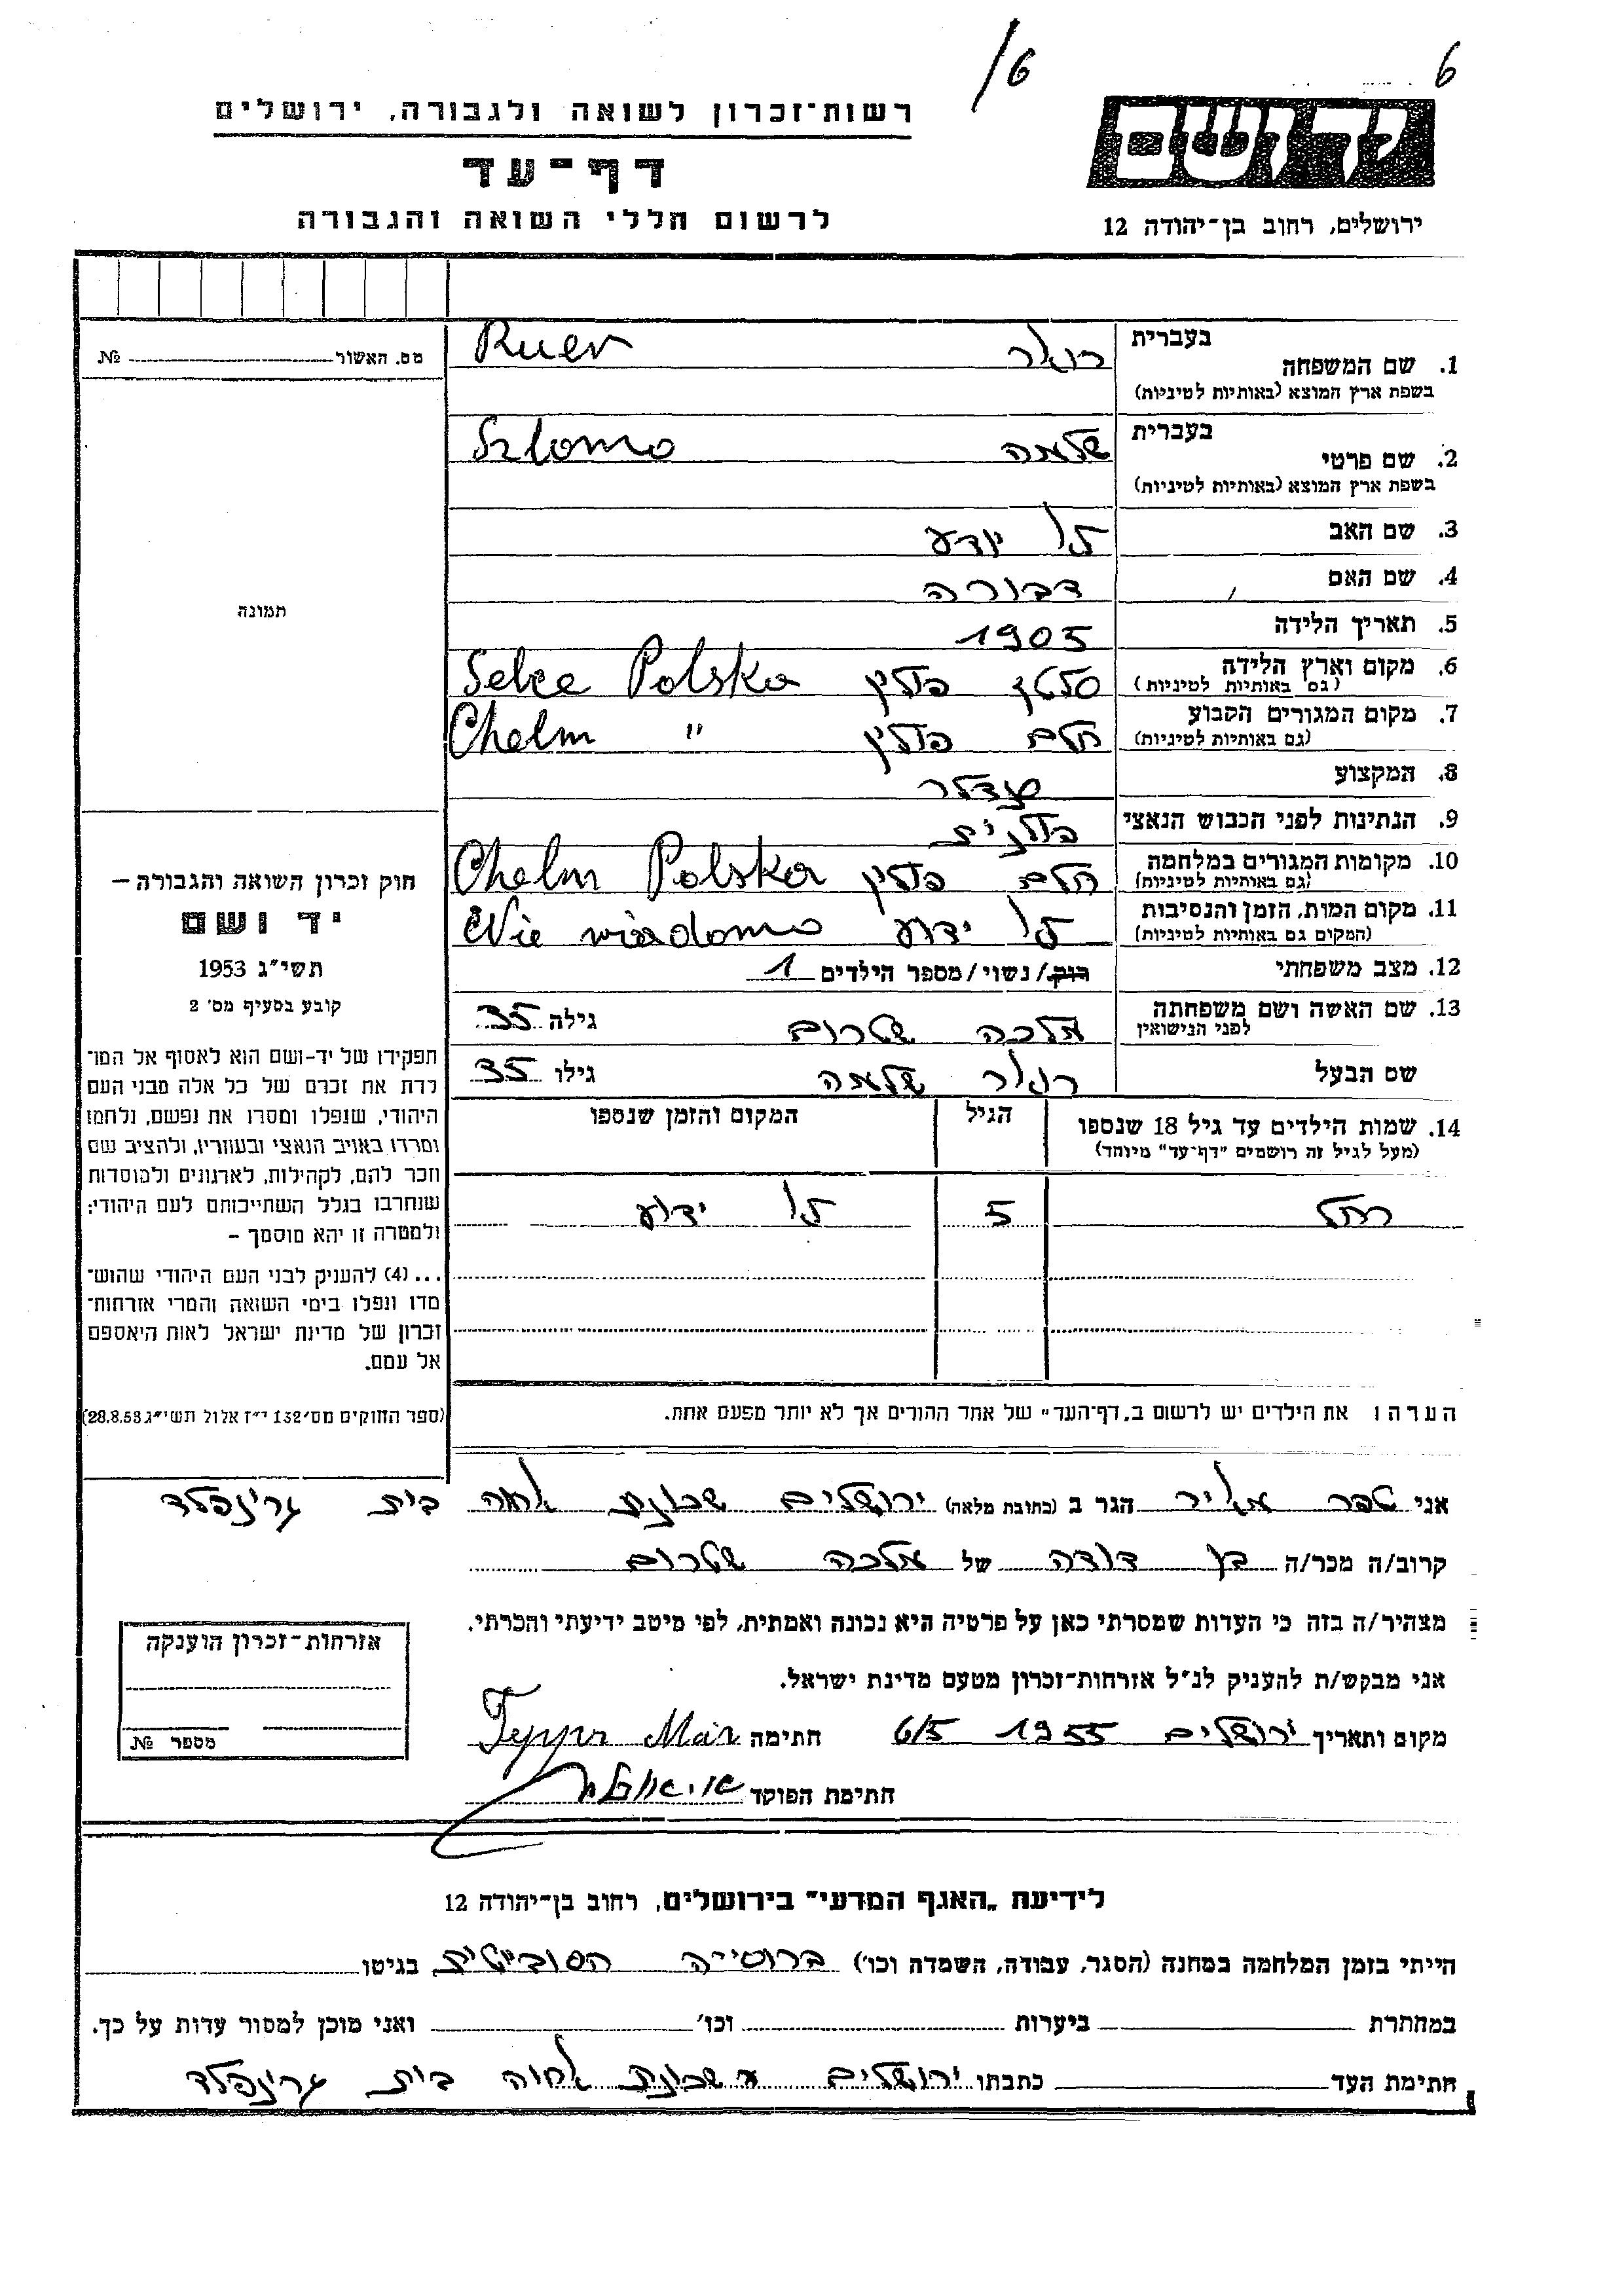 /6
6
רשות־זכרון לשואה ולגבורה, ירושלים
דף־עד
לרשום חללי השואה והגבורה
יד ושם
ירושלים, רחוב בן־יהודה 12
מס. האשור № 
תמונה
חוק זכרון השואה והגבורה –
יד ושם
תשי״ג 1953
קובע בסעיף מס׳ 2
תפקידו של יד-ושם הוא לאסוף אל המו־
לדת את זכרם של כל אלה מבני העם
היהודי, שנפלו ומסרו את נפשם, נלחמו
ומרדו באויב הנאצי ובעוזריו, ולהציב שם
וזכר להם, לקהילות, לארגונים ולמוסדות
שנחרבו בגלל השתייכותם לעם היהודי;
ולמטרה זו יהא מוסמך –
... (4) להעניק לבני העם היהודי שהוש־
מדו ונפלו בימי השואה והמרי אזרחות־
זכרון של מדינת ישראל לאות היאספם
אל עמם.
(ספר החוקים מס׳ 132 י״ז אלול תשי״ג 28.8.53)
1. שם המשפחה בעברית Ruer
בשפת ארץ המוצא (באותיות לטיניות)
2. שם פרטי בעברית שלמה Szlomo
בשפת ארץ המוצא (באותיות לטיניות)
3. שם האב לא יודע
4. שם האם דבורה
5. תאריך הלידה 1905
6. מקום וארץ הלידה (גם באותיות לטיניות) פולין Selce Polska
7. מקום המגורים הקבוע (גם באותיות לטיניות) חלם פולין Chelm "
8. המקצוע סנדלר
9. הנתינות לפני הכבוש הנאצי פולנית
10. מקומות המגורים במלחמה (גם באותיות לטיניות) חלם פולין Chelm Polska
11. מקום המות, הזמן והנסיבות (המקום גם באותיות לטיניות) לא ידוע Nie wiadomo
12. מצב משפחתי רווק/נשוי/מספר הילדים 1
13. שם האשה ושם משפחתה לפני הנישואין מלכה שטרום גילה 35
שם הבעל שלמה גילו 35
14. שמות הילדים עד גיל 18 שנספו הגיל המקום והזמן שנספו
(מעל לגיל זה רושמים "דף־עד" מיוחד)
רחל 5 לא ידוע
הערה: את הילדים יש לרשום ב„דף־העד״ של אחד ההורים אך לא יותר מפעם אחת.
אני טפר מאיר הגר ב (כתובת מלאה) ירושלים שכונת בית גרינפלד
קרוב/ה מכר/ה בן דודה של מלכה שטרום
מצהיר/ה בזה כי העדות שמסרתי כאן על פרטיה היא נכונה ואמתית, לפי מיטב ידיעתי והכרתי.
אני מבקש/ת להעניק לנ״ל אזרחות־זכרון מטעם מדינת ישראל.
מקום ותאריך ירושלים 1955 6/5 חתימה
חתימת הפוקד
אזרחות־זכרון הוענקה
מספר №
לידיעת „האגף המדעי״ בירושלים, רחוב בן־יהודה 12
הייתי בזמן המלחמה במחנה (הסגר, עבודה, השמדה וכו׳) ברוסייה הסובייטית בגיטו
במחתרת ביערות וכו׳ ואני מוכן למסור עדות על כך.
חתימת העד כתבתו ירושלים שכונת בית גרינפלד